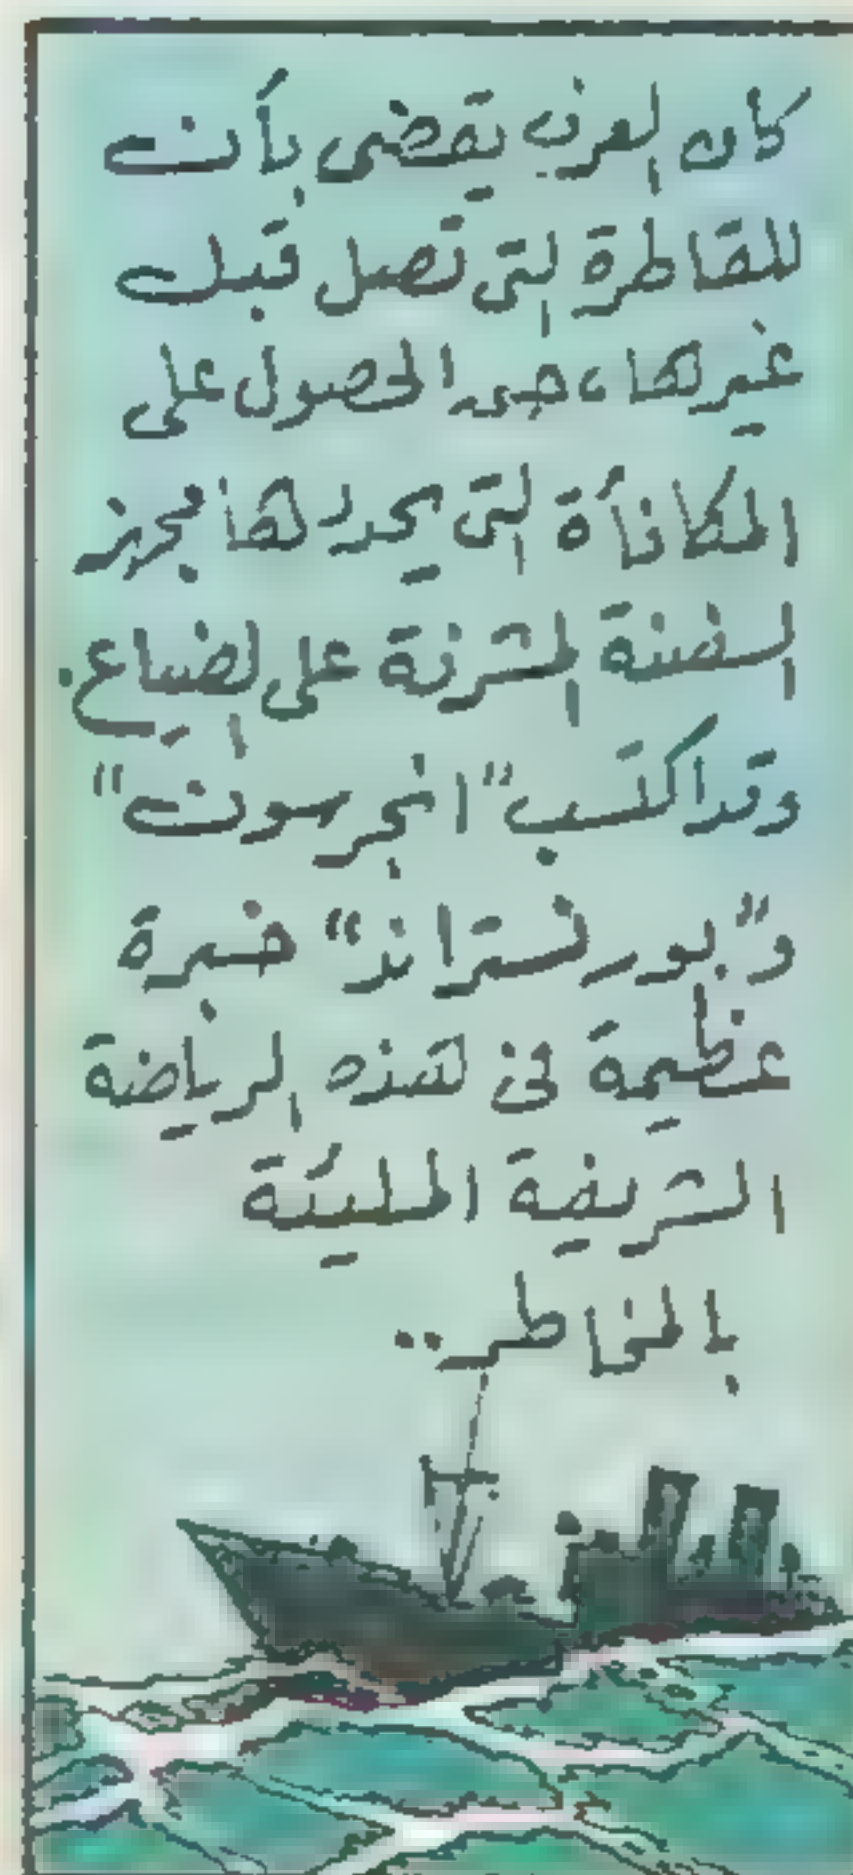 كان العرف يقضى بأن
للقاطرة التى تصل قبل
غيرها، حق الحصول على
المكافأة التى يحددها مجهز
السفينة المشرفة على الضياع.
وقد اكتسب "انجرسون"
و"بورنستراند" خبرة
عظيمة فى هذه الرياضة
الشريفة المليئة
بالمخاطر..